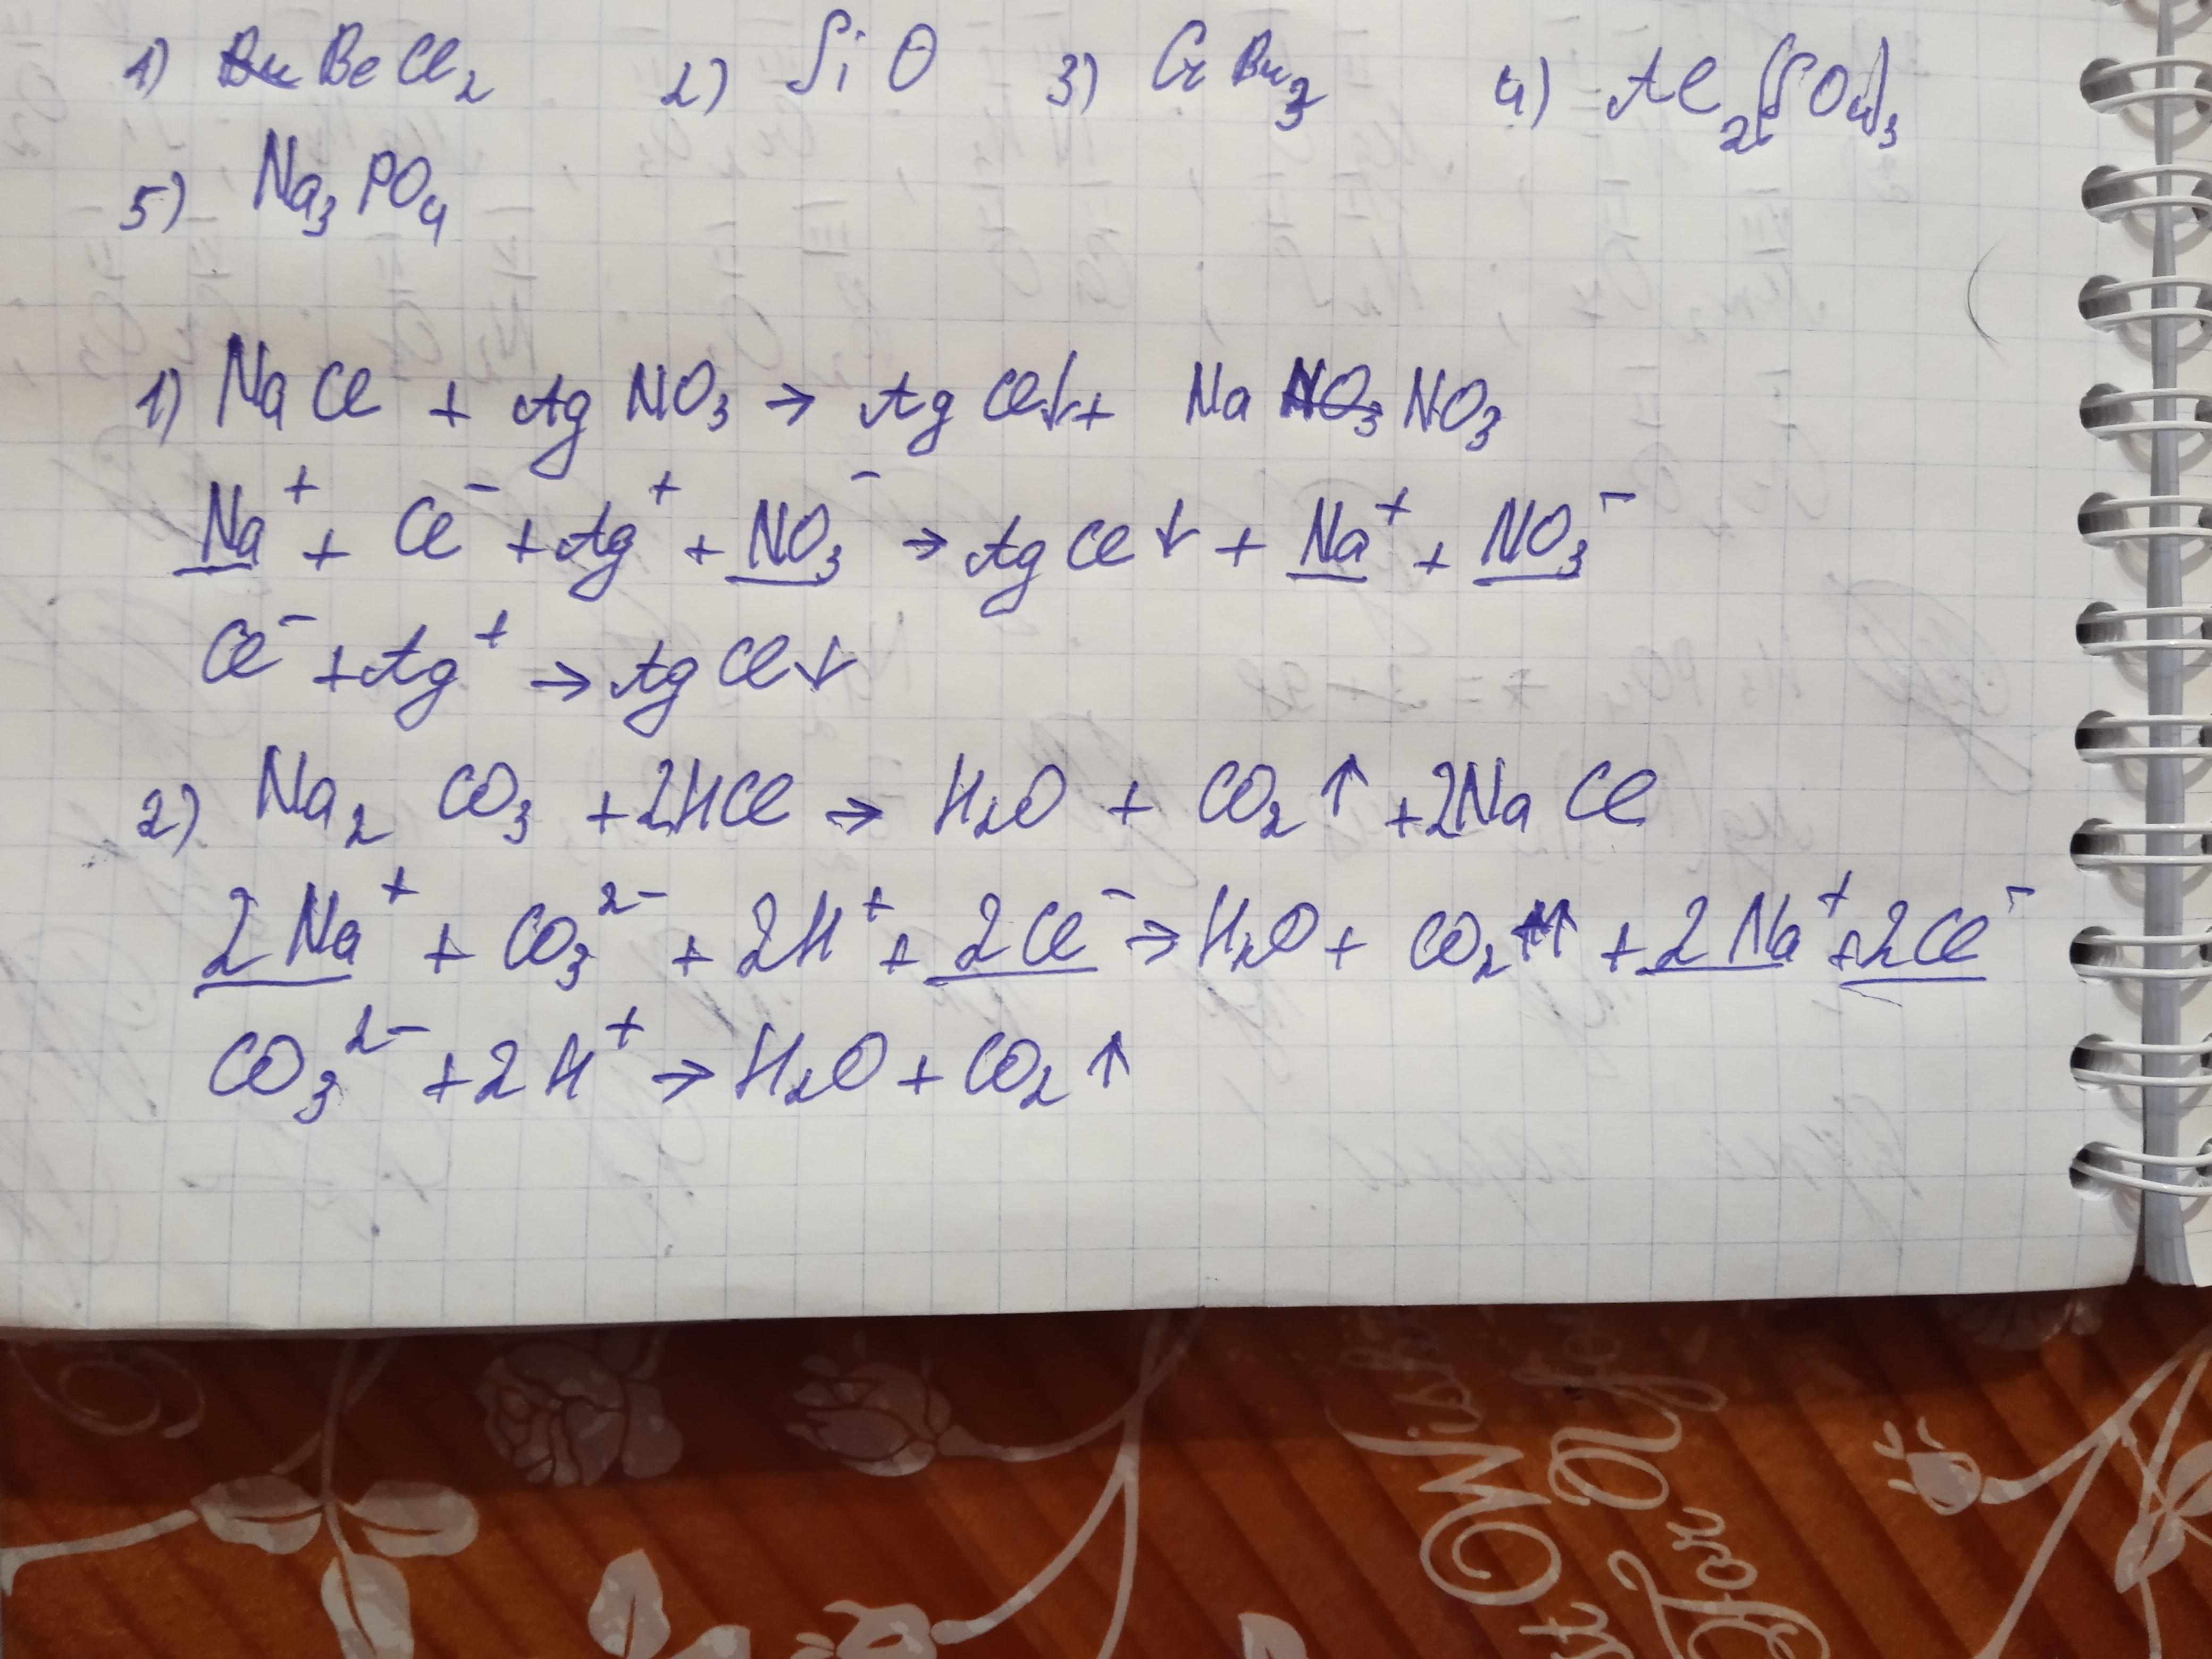 1) BeCl₂ 2) SiO 3) CrBr₃ 4) Al₂(SO₄)₃
5) Na₃PO₄
1) NaCl + AgNO₃ → AgCl↓ + Na NO₃
Na⁺ + Cl⁻ + Ag⁺ + NO₃⁻ → AgCl↓ + Na⁺ + NO₃⁻
Cl⁻ + Ag⁺ → AgCl↓
2) Na₂CO₃ + 2HCl → H₂O + CO₂↑ + 2NaCl
2Na⁺ + CO₃²⁻ + 2H⁺ + 2Cl⁻ → H₂O + CO₂↑ + 2Na⁺ + 2Cl⁻
CO₃²⁻ + 2H⁺ → H₂O + CO₂↑